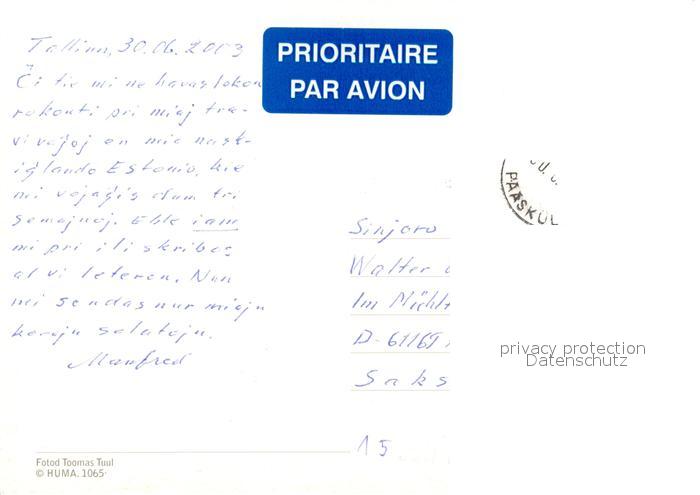 Tallinn, 30.06.2003
PRIORITAIRE
PAR AVION
Ĉi tie mi ne havas lokon
rakonti pri miaj tra-
vivaĵoj en mia nask-
iĝlando Estonio, kie
mi vojaĝis dum tri
semajnoj. Eble iam
mi pri ili skribos
al vi leteron. Nun
mi sendas nur miajn
korajn salutojn.
Manfred
PÄÄSKÜL
Sinjoro
Walter
Im Mühlt
D-61169
Saks
15
privacy protection
Datenschutz
Fotod Toomas Tuul
© HUMA. 1065